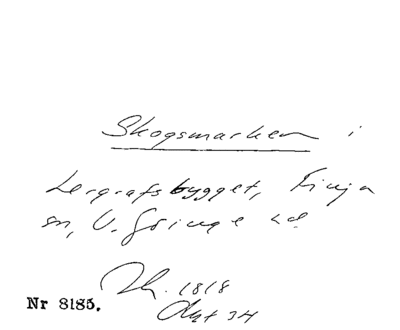 Skogsmarken i
Lergrafsbygget, Finja
sn, V. Göinge hd
1818
Nr 8185.
Akt 34